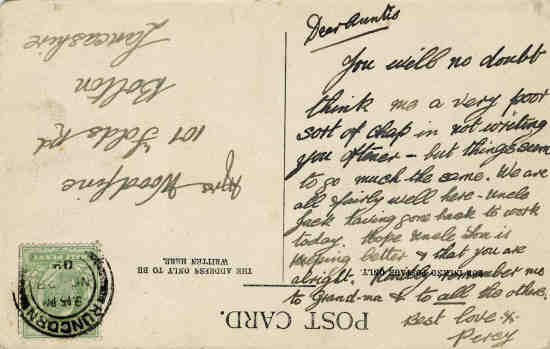 Dear Auntie
You will no doubt
think me a very poor
sort of chap in not writing
you oftener - but things seem
to go much the same. We are
all fairly well here - Uncle
Jack having gone back to work
today. Hope Uncle is
keeping better & that you are
alright. remember me
to Grand-ma & to all the others.
Best love &
Percy
Mrs Woodfine
107 Folds Rd
Bolton
Lancashire
THE ADDRESS ONLY TO BE
WRITTEN HERE.
POSTAGE ONLY.
POST CARD.
RUNCORN